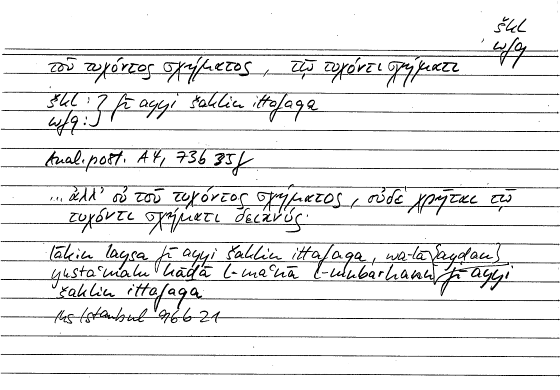 škl
wfq
τοῦ τυχόντος σχήματος, τῷ τυχόντι σχήματι
škl : } fī ayyi šaklin ittafaqa
wfq :
Anal. post. A 4, 73b 35f
... ἀλλ' οὐ τοῦ τυχόντος σχήματος, οὐδὲ χρῆται τῷ
τυχόντι σχήματι δεικνύς·
lākin laysa fī ayyi šaklin ittafaqa, wa-lā {ayḍan}
yustaʿmalu hāḏā l-maʿnā l-mubarhanu fī ayyi
šaklin ittafaqa
Ms Istanbul 96b 21